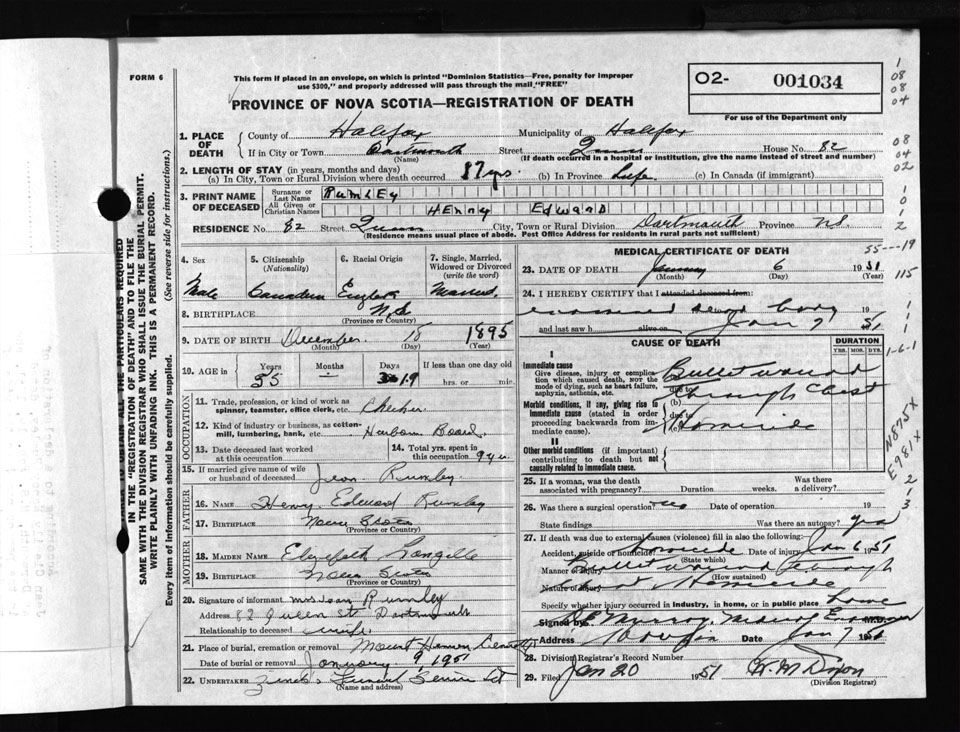 FORM 6
This form if placed in an envelope, on which is printed "Dominion Statistics—Free, penalty for improper
use $300," and properly addressed will pass through the mail "FREE"
PROVINCE OF NOVA SCOTIA—REGISTRATION OF DEATH
02- 001034
For use of the Department only
1. PLACE OF DEATH County of Halifax Municipality of Halifax
If in City or Town Dartmouth Street Queen House No. 82
(Name) (If death occurred in a hospital or institution, give the name instead of street and number)
2. LENGTH OF STAY (in years, months and days)
(a) In City, Town or Rural Division where death occurred 17 yrs. (b) In Province Life (c) In Canada (if immigrant)
3. PRINT NAME OF DECEASED Surname or Last Name RUMLEY
All Given or Christian Names HENRY EDWARD
RESIDENCE No. 82 Street Queen City, Town or Rural Division Dartmouth Province N.S.
(Residence means usual place of abode. Post Office Address for residents in rural parts not sufficient)
4. Sex 5. Citizenship (Nationality) 6. Racial Origin 7. Single, Married, Widowed or Divorced (write the word)
Male Canadian English Married
8. BIRTHPLACE N.S.
(Province or Country)
9. DATE OF BIRTH December 18 1895
(Month) (Day) (Year)
10. AGE in Years Months Days If less than one day old
55 - 19 hrs. or min.
OCCUPATION
11. Trade, profession, or kind of work as
spinner, teamster, office clerk, etc. Checker
12. Kind of industry or business, as cotton-
mill, lumbering, bank, etc. Harbour Board
13. Date deceased last worked at this occupation 14. Total yrs. spent in this occupation 9 yrs.
15. If married give name of wife
or husband of deceased Jean Rumley
FATHER
16. NAME Henry Edward Rumley
17. BIRTHPLACE Nova Scotia
(Province or Country)
MOTHER
18. MAIDEN NAME Elizabeth Langille
19. BIRTHPLACE Nova Scotia
(Province or Country)
20. Signature of informant Mrs Jean Rumley
Address 82 Queen St Dartmouth
Relationship to deceased wife
21. Place of burial, cremation or removal Mount Hermon Cemetery
Date of burial or removal January 9, 1951
22. UNDERTAKER Funeral Service Ltd
(Name and address)
MEDICAL CERTIFICATE OF DEATH
23. DATE OF DEATH January 6 1951
(Month) (Day) (Year)
24. I HEREBY CERTIFY that I attended deceased from:
examined body 19
and last saw h alive on Jan 7 1951
CAUSE OF DEATH DURATION
YRS. MOS. DYS.
I
Immediate cause
Give disease, injury or complica-
tion which caused death, NOT the
mode of dying, such as heart failure,
asphyxia, asthenia, etc.
(a) Bullet wound
due to through Chest
Morbid conditions, if any, giving rise to
immediate cause (stated in order
proceeding backwards from im-
mediate cause).
(b)
due to
(c) Homicide
II
Other morbid conditions (if important)
contributing to death but not
causally related to immediate cause.
25. If a woman, was the death
associated with pregnancy? Duration weeks. Was there a delivery?
26. Was there a surgical operation? no Date of operation 19
State findings Was there an autopsy? yes
27. If death was due to external causes (violence) fill in also the following:
Accident, suicide or homicide? Homicide Date of injury Jan 6 1951
(State which)
Manner of injury Bullet wound through
(How sustained)
Nature of injury Chest Homicide
Specify whether injury occurred in industry, in home, or in public place home
Signed by Murray, Medical Examiner M.D.
Address Date Jan 7 1951
28. Division Registrar's Record Number
29. Filed Jan 20 1951 H. M. Dixon
(Division Registrar)
IN THE "REGISTRATION OF DEATH" AND TO FILE THE
SAME WITH THE DIVISION REGISTRAR WHO SHALL ISSUE THE BURIAL PERMIT.
WRITE PLAINLY WITH UNFADING INK. THIS IS A PERMANENT RECORD.
Every item of information should be carefully supplied. (See reverse side for instructions.)
1
08
08
04
08
04
02
1
0
1
2
55--19
115
1-6-1
N875X
E981X
2
1
3